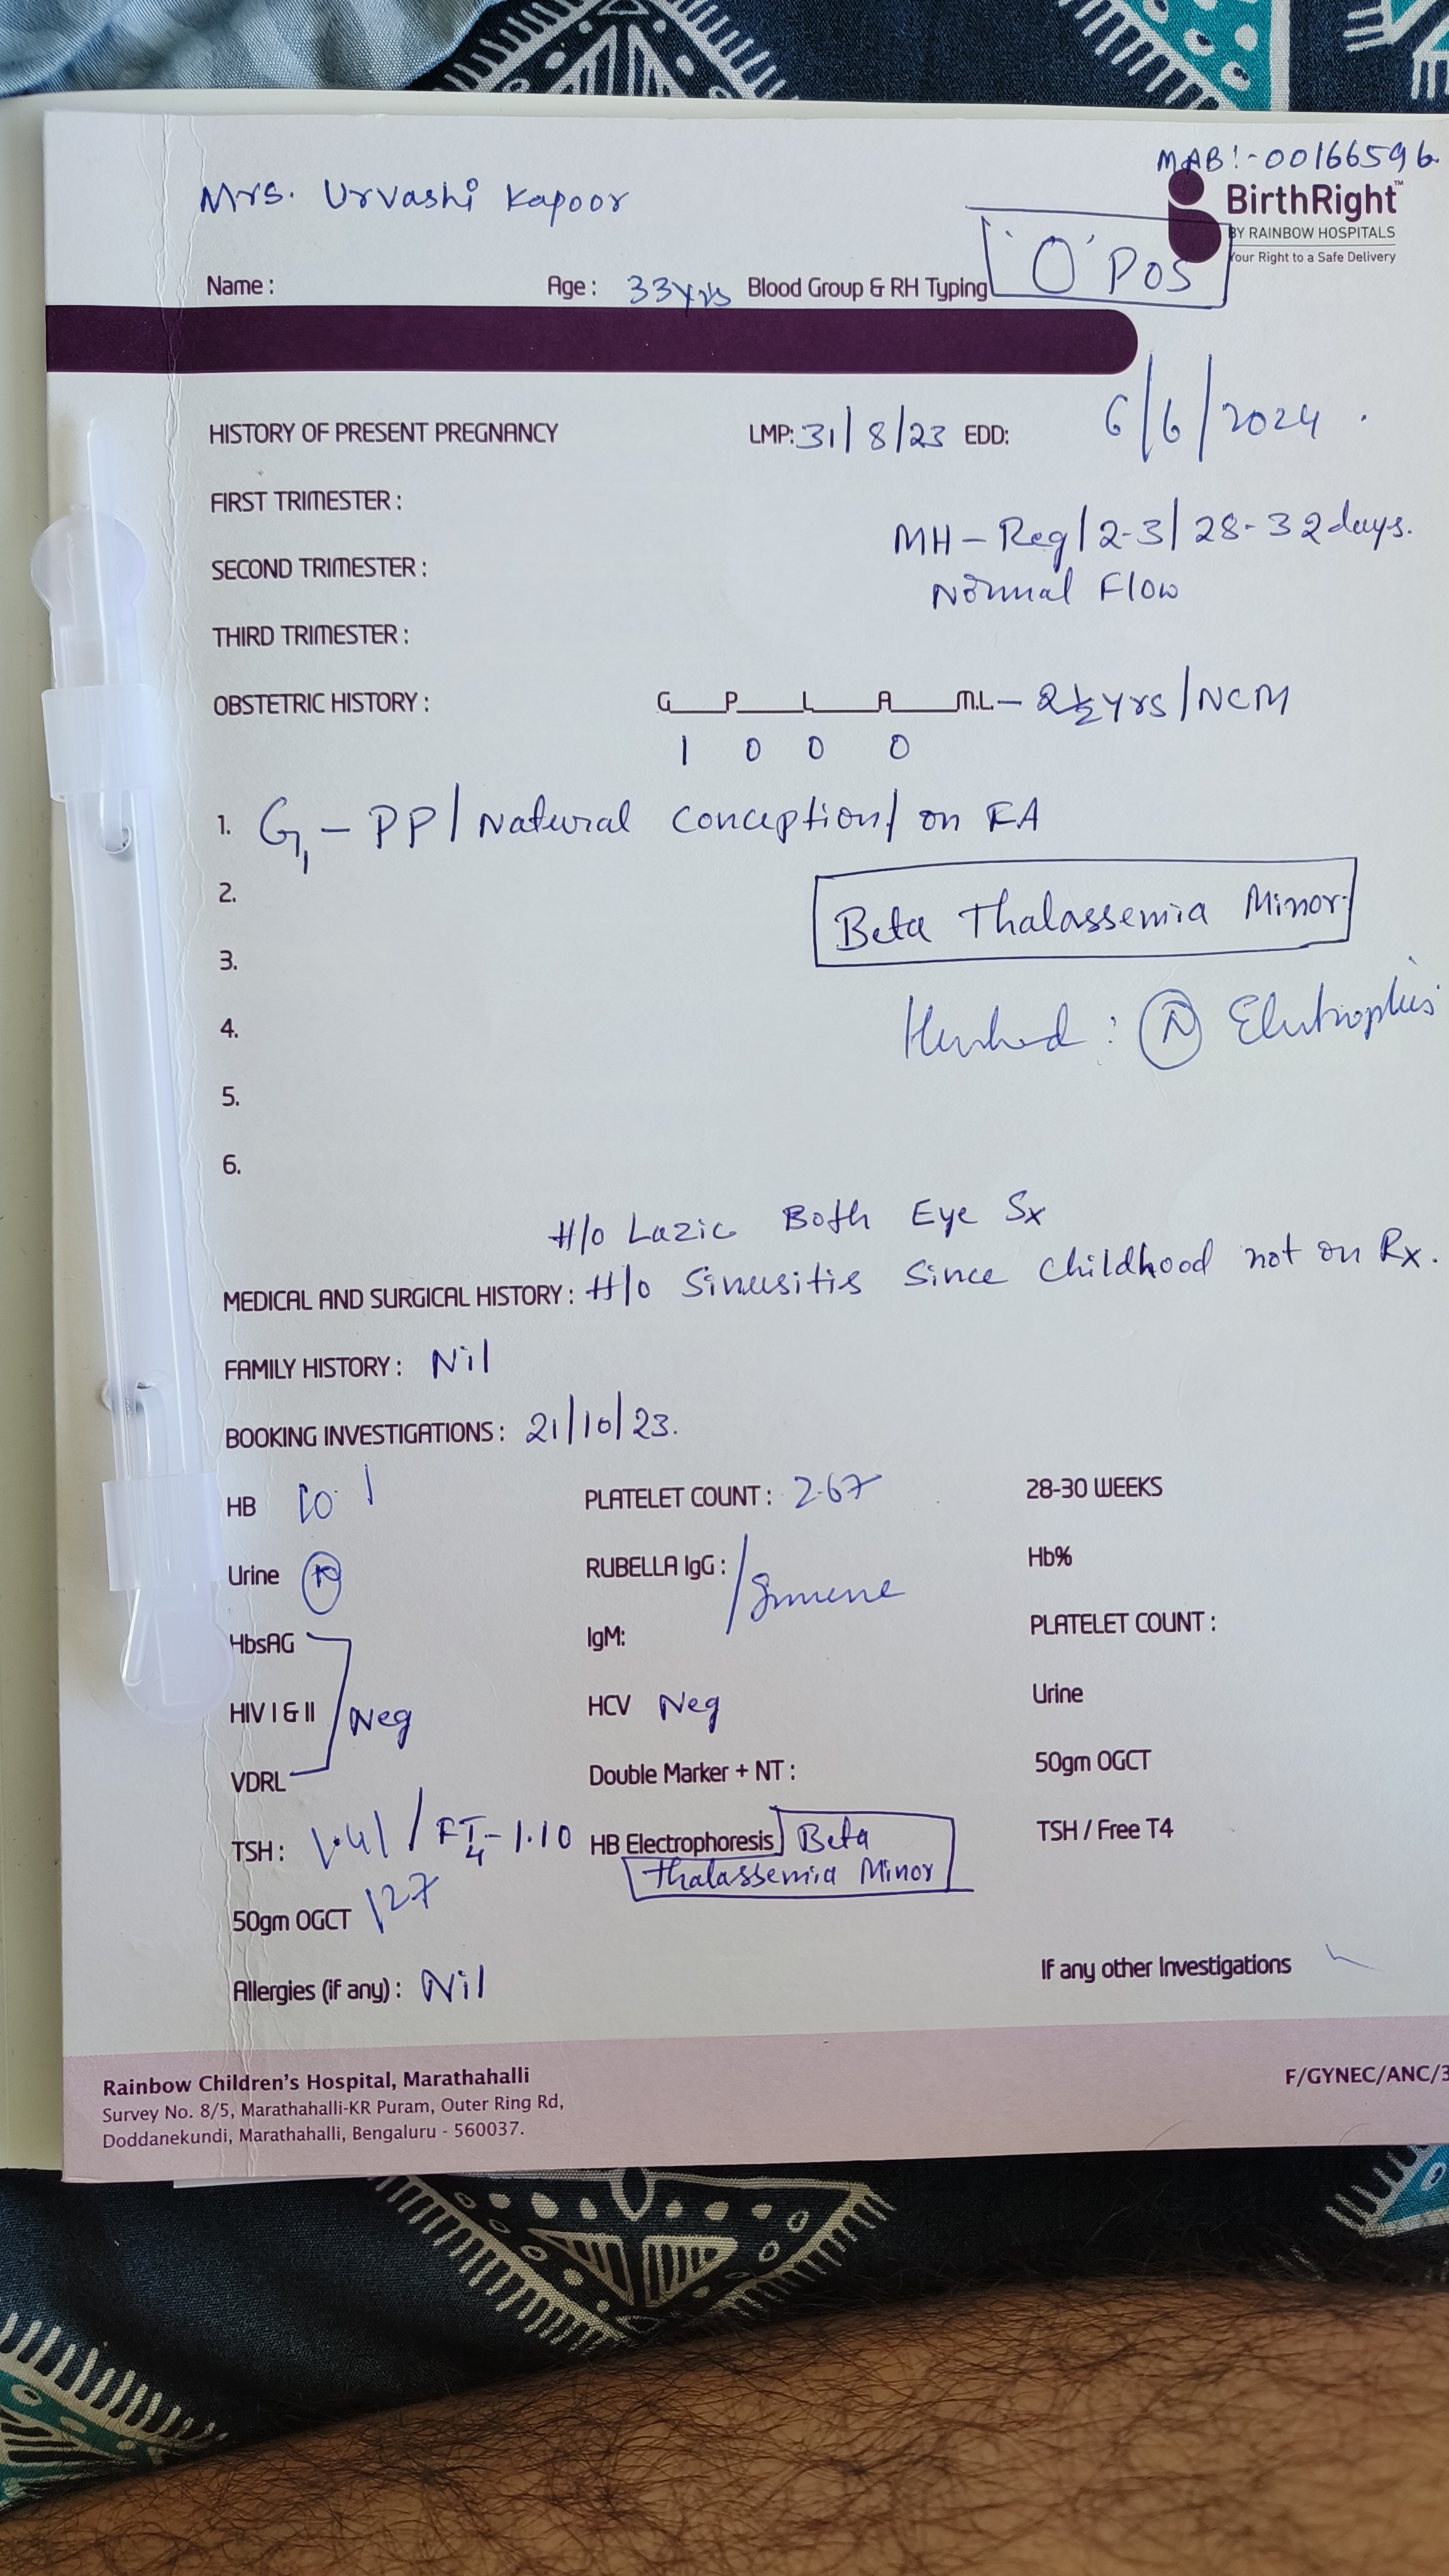 MAB:-00166596
Mrs. Urvashi Kapoor
BirthRight™
BY RAINBOW HOSPITALS
Your Right to a Safe Delivery
Name : Age : 33yrs Blood Group & RH Typing 'O' POS
HISTORY OF PRESENT PREGNANCY LMP: 31/8/23 EDD: 6/6/2024.
FIRST TRIMESTER :
MH - Reg/2-3/28-32days.
SECOND TRIMESTER :
Normal Flow
THIRD TRIMESTER :
OBSTETRIC HISTORY : G P L A M.L - 2½yrs/NCM
1 0 0 0
1. G1 - PP/Natural Conception/on FA
2.
Beta Thalassemia Minor.
3.
4. : N
5.
6.
H/o Lazic Both Eye Sx
MEDICAL AND SURGICAL HISTORY : H/o Sinusitis Since Childhood not on Rx.
FAMILY HISTORY : Nil
BOOKING INVESTIGATIONS : 21/10/23.
HB 10.1 PLATELET COUNT : 2.67 28-30 WEEKS
Urine RUBELLA IgG : Immune Hb%
HbsAG IgM: PLATELET COUNT :
HIV I & II Neg HCV Neg Urine
VDRL Double Marker + NT : 50gm OGCT
TSH : 1.41 / FT4-1.10 HB Electrophoresis Beta TSH / Free T4
Thalassemia Minor
50gm OGCT 127
Allergies (if any) : Nil If any other Investigations
Rainbow Children's Hospital, Marathahalli
Survey No. 8/5, Marathahalli-KR Puram, Outer Ring Rd,
Doddanekundi, Marathahalli, Bengaluru - 560037.
F/GYNEC/ANC/3